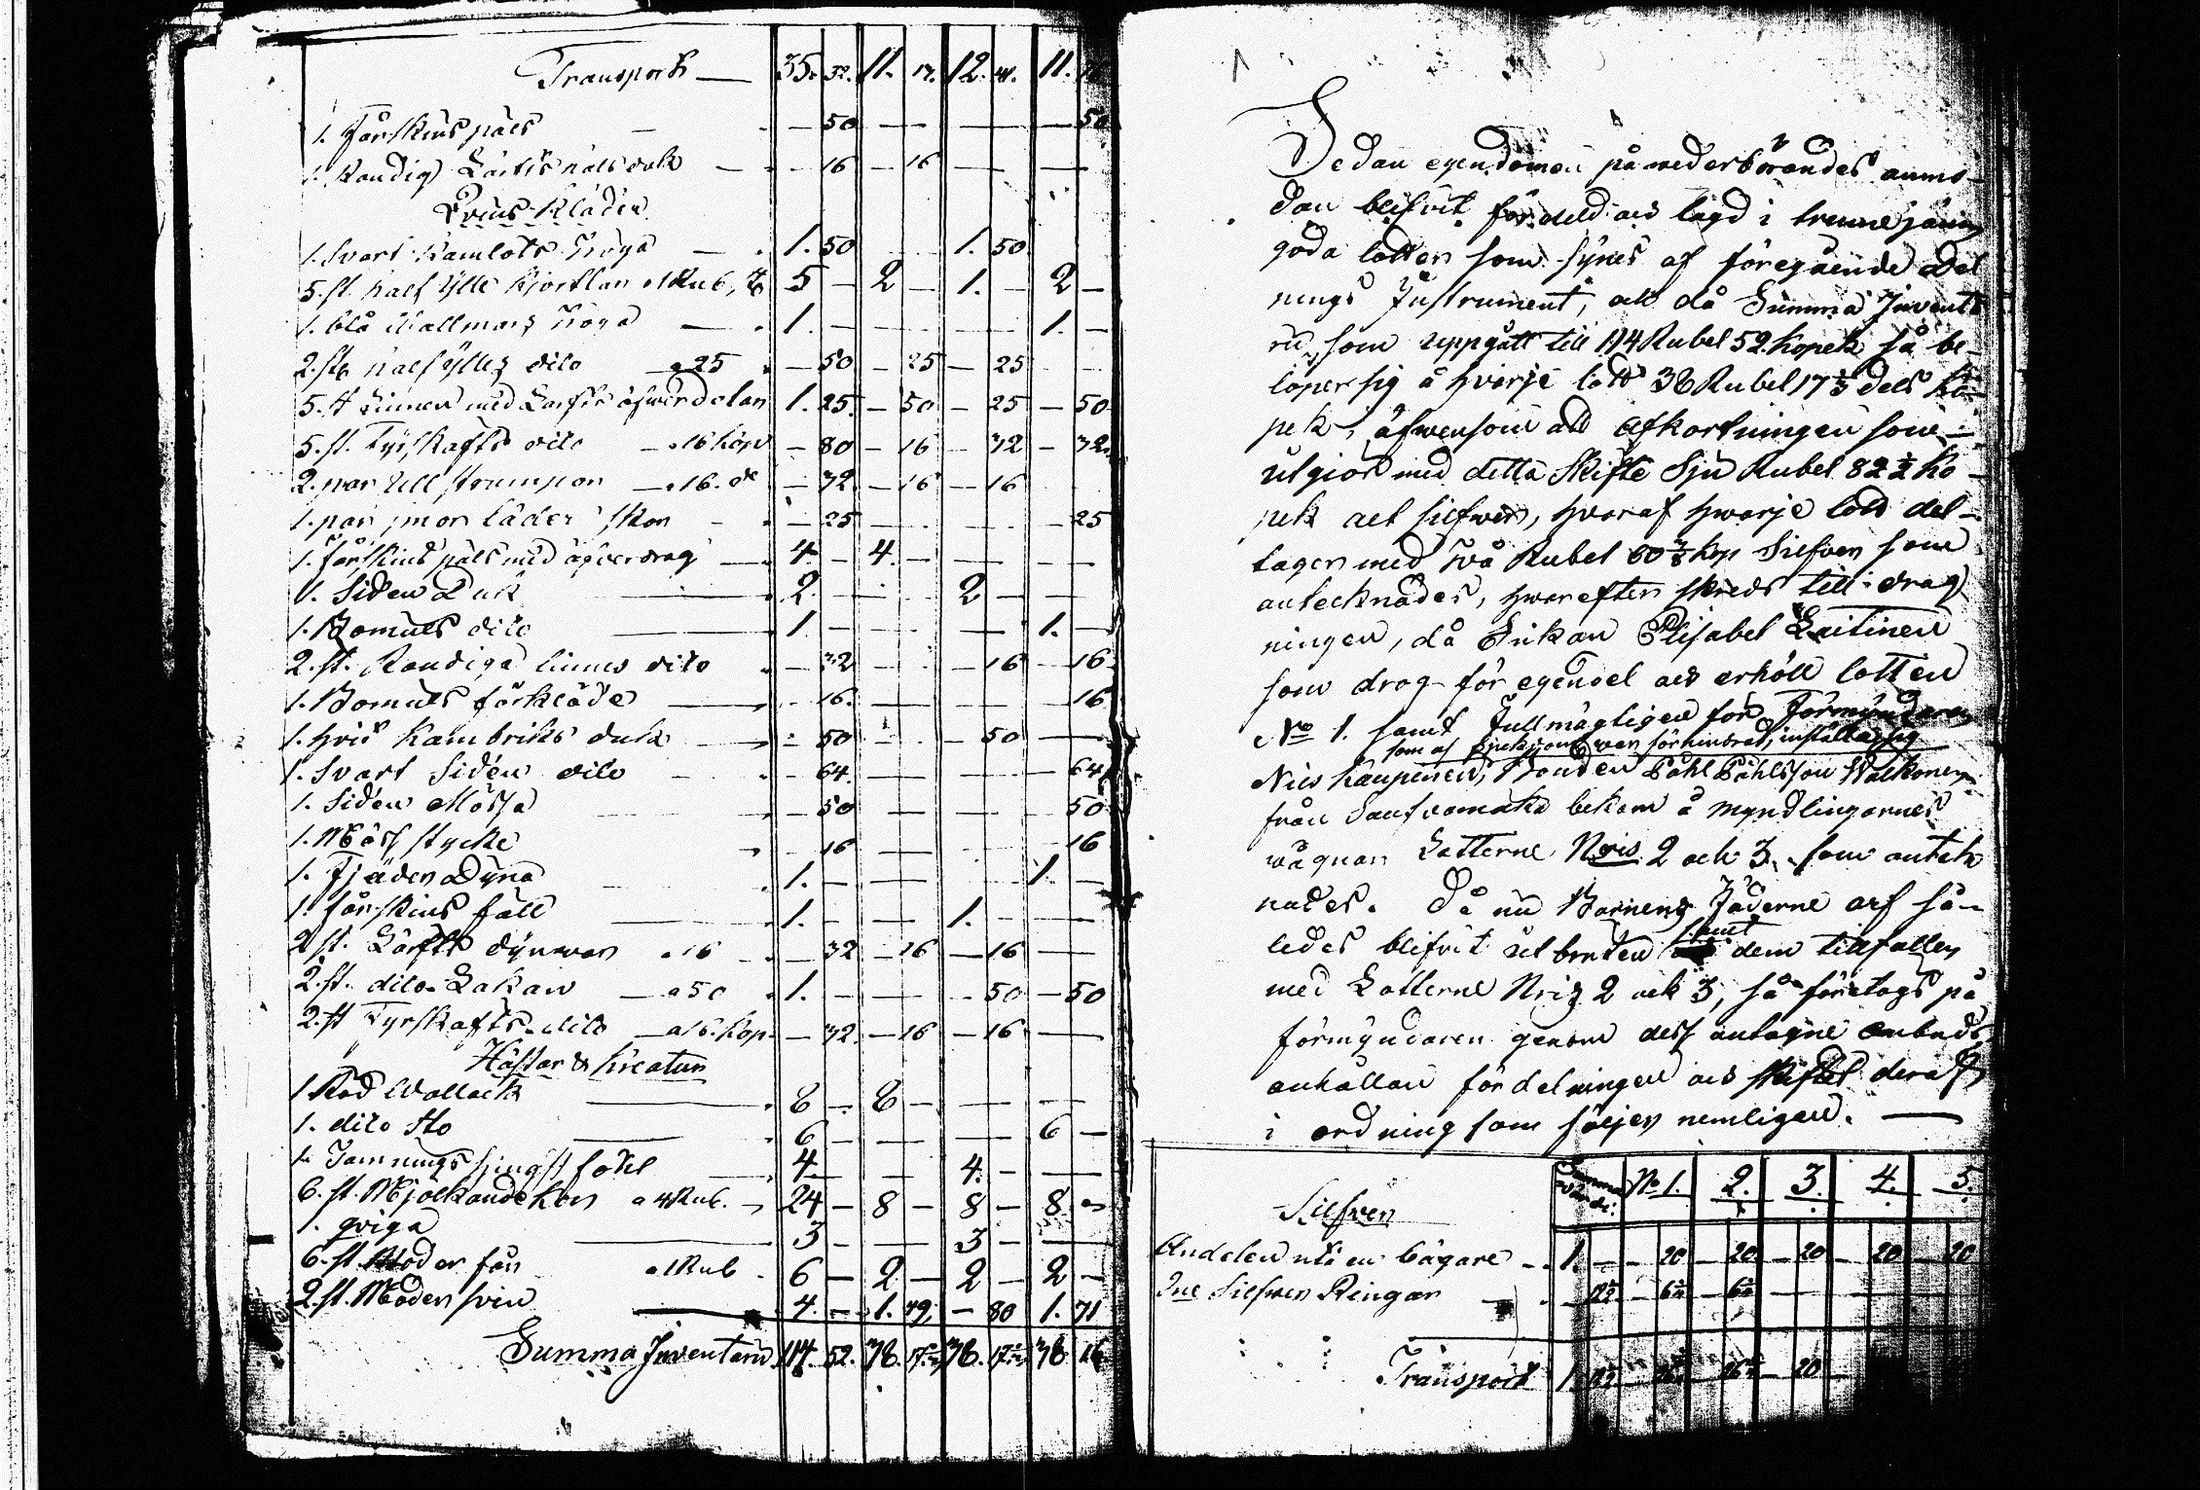 Transport — 35. 52. 11. 17. 12. 41. 11.
1. Fårskins päls — — 50 — — — — — 50
1. Randig Lärfts halsduk — — 16 — 16 — — —
Qvins Kläder
1. Svart Kamlots Tröga — 1. 50 1. 50
5. st. half ylle Kjortlar a 1 Rub. 5 — 2 — 1. — 2 —
1. blå Wallmans Tröga — 1. — 1. —
2. st. half ylles dito — a 25 — 50 — 25 — 25
5. st Linnen med Lärfts öfwerdelar 1. 25. — 50 — 25 — 50
5. st. Fyrskafts dito — a 16 kop — 80 — 16 — 32 — 32.
2. par ull strumpor — a 16. — 32 — 16 — 16
1. par läder skor — — 25 25
1. fårskins päls med öfverdrag — 4 — 4. — — —
1. Siden Duk — 2 2 — —
1. Bomuls dito — 1. — — 1. —
2. st. Randiga linnes dito — 32 — 16 — 16
1. Bomuls förkläde — — 16. — — 16
1. hvit Kambriks duk — — 50 50 —
1. Svart Siden dito — 64. — — 64
1. Siden Mössa — 50 — — 50
1. Möss stycke — 16 — — 16
1. Fjäder Dyna 1. — — 1. —
1. fårskins fäll 1. — — 1. — —
2 st. Lärfts dynwar a 16 — 32 — 16 — 16 —
2. st. dito Lakan — a 50 1. — — 50 — 50
2. st Fyrskafts dito — a 16. kop — 32. — 16 — 16 —
Hästar & Kreatur
1 Röd Wallack — 8 — 8 — — —
1. dito Sto — 6 — — — 6 —
1. Tamnings hingst fohl 4 — — 4. — —
6. st. Mjölkande Kor a 4 Rub. 24 — 8 — 8 — 8
1. qviga — 3 — — 3 — —
6. st. Moder får a 1 Rub 6 — 2 — 2 — 2 —
2. st. Moder svin — 4. — 1. 79. — 80 1. 71
Summa Inventarii 114. 52. 38. 38. 38 16
Sedan egendomen på wederbörandes anmo-
dan blifvit fördeld och lagd i trenne jämn
goda lotter som synes af föregående Del
nings Instrument, och då Summa Inventa
rii som uppgått till 114 Rubel 52 kopek så be-
löper sig å hvarje lott 38 Rubel 17 ⅓ dels ko-
pek, äfwensom att afkortningen som —
utgiör med detta Skifte Sju Rubel 82 ½ ko-
pek alt silfwer, hvaraf hwarje lott del-
tager med två Rubel 60 kop Silfwer som
antecknades, hwarefter skreds till drag
ningen, då Enkan Elisabet Laitinen
som drog för egen del och erhöll lotten
No 1. samt Fullmägtigen för Förmyndaren
som af war förhindrad, inställa sig
Nils Kaupinen, Bonden Påhl Påhlsson Walkonen
från bekom å myndlingarnes
wägnar Lotterne Nris 2 och 3. som antek
nades. Då nu Barnens Fäderne arf så-
ledes blifvit utbruten samt dem tillfallen
med Lotterne Nris 2 och 3, så företogs på
förmyndaren genom dess antagne ombuds
anhållan fördelningen och skiftet deraf
i ordning som följer nemligen. —
Summa Värde: No 1. 2. 3. 4. 5.
Silfwer
Andelen uti en bägare — 1. — — 20 — 20 — 20 — 20 — 20
2ne Silfwer Ringar
Transport 1. 20